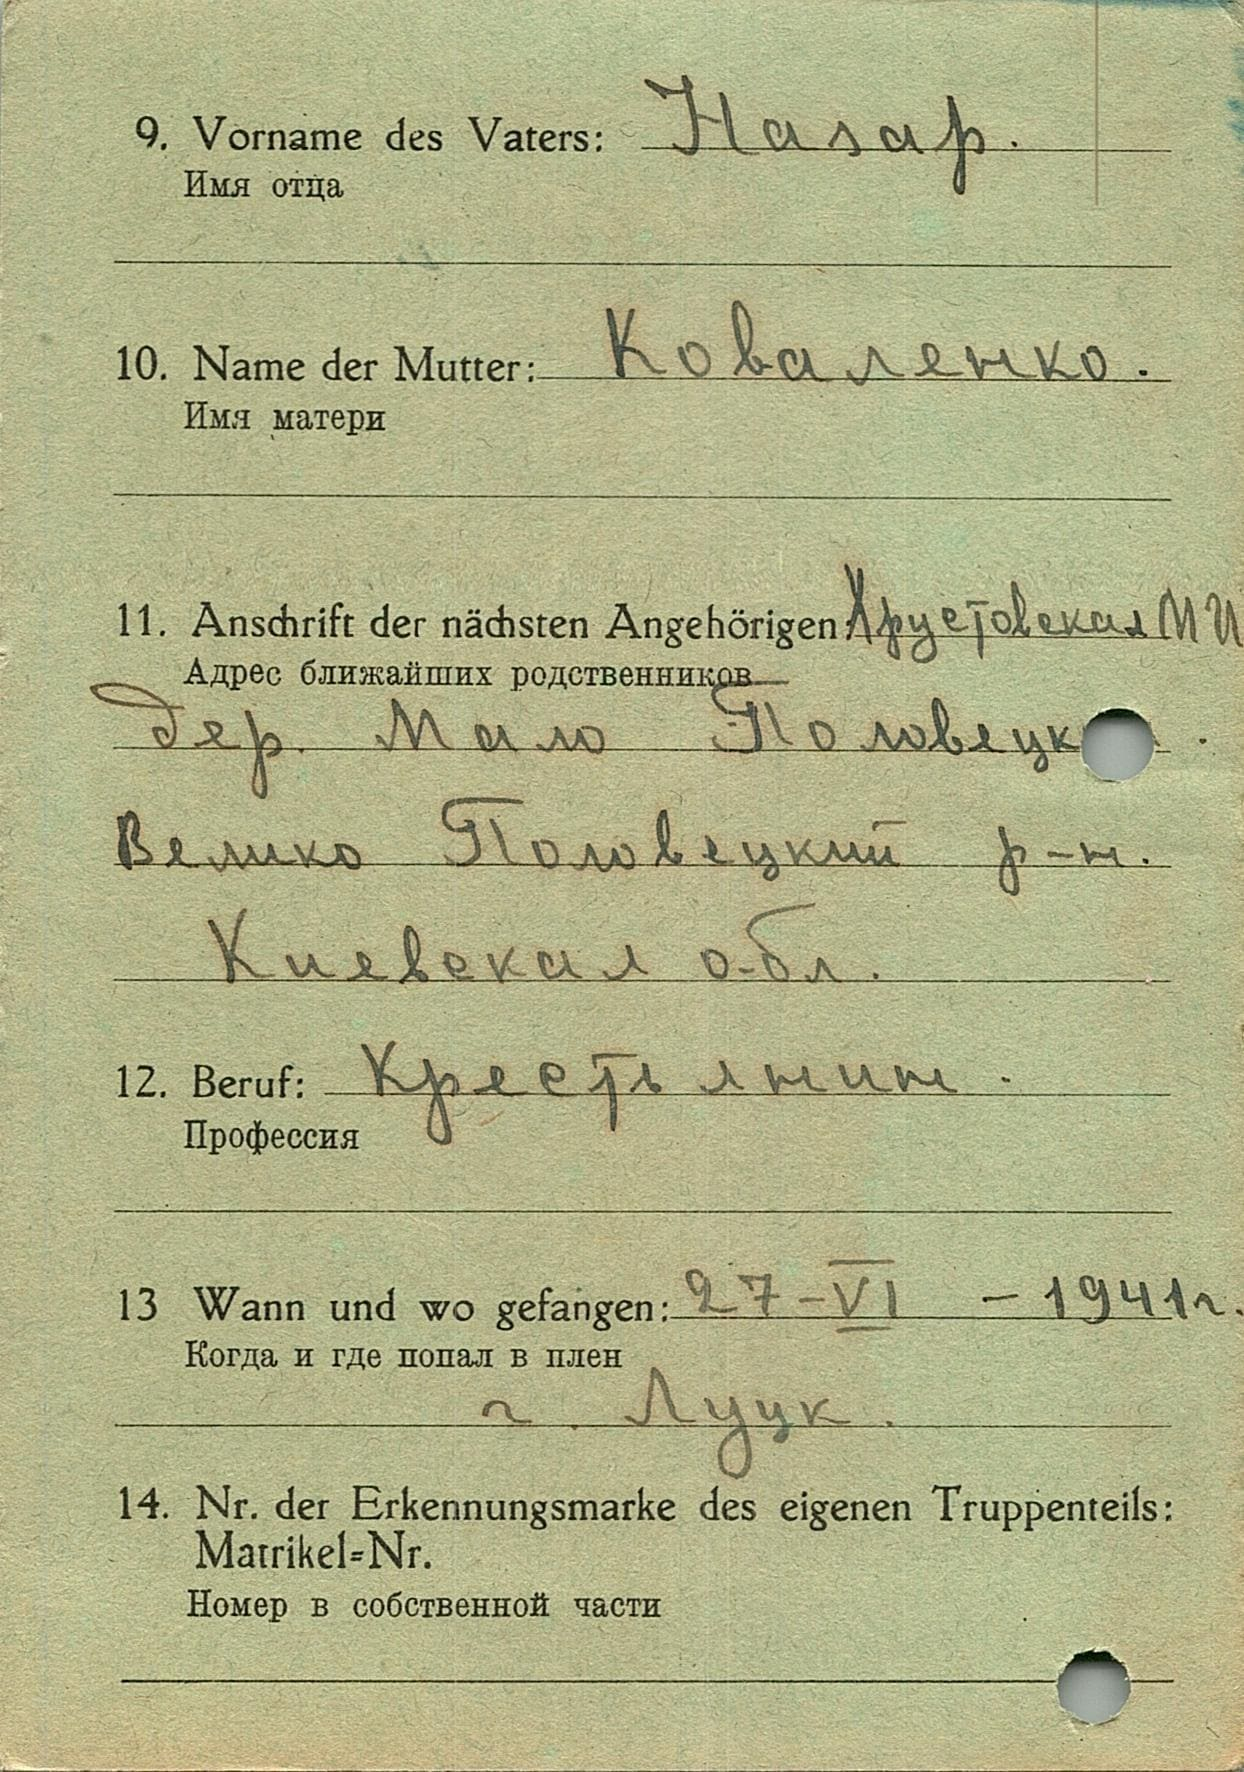 9. Vorname des Vaters: Назар.
Имя отца
10. Name der Mutter: Коваленко.
Имя матери
11. Anschrift der nächsten Angehörigen: Хрустовская М И
Адрес ближайших родственников
дер. Мало Половецк
Велико Половецкий р-н.
Киевская о-бл.
12. Beruf: Крестьянин.
Профессия
13 Wann und wo gefangen: 27-VI - 1941г.
Когда и где попал в плен
г. Луцк.
14. Nr. der Erkennungsmarke des eigenen Truppenteils:
Matrikel=Nr.
Номер в собственной части